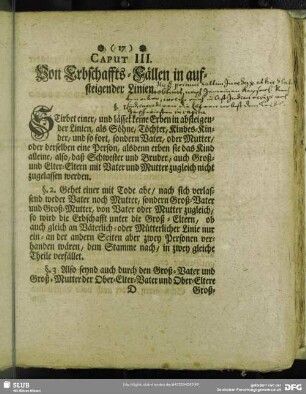 (17)
CAPUT III.
Von Erbschaffts-Fällen in auf-
steigender Linien.
Stirbet einer, und lässet keine Erben in absteigen-
der Linien, als Söhne, Töchter, Kindes-Kin-
der, und so fort, sondern Vater, oder Mutter,
oder derselben eine Person, alsdenn erben sie das Kind
alleine, also, daß Schwester und Bruder, auch Groß-
und Elter-Eltern mit Vater und Mutter zugleich nicht
zugelassen werden.
§. 2. Gehet einer mit Tode abe, nach sich verlas-
send weder Vater noch Mutter, sondern Groß-Vater
und Groß-Mutter, von Vater oder Mutter zugleich,
so wird die Erbschafft unter die Groß-Eltern, ob
auch gleich an Väterlich- oder Mütterlicher Linie nur
ein, an der andern Seiten aber zwey Personen ver-
handen wären, dem Stamme nach, in zwey gleiche
Theile verfället.
§. 3 Also seynd auch durch den Groß-Vater und
Groß-Mutter der Ober-Elter-Vater und Ober-Eltere
D Groß-
SLUB
Wir führen Wissen.
DFG